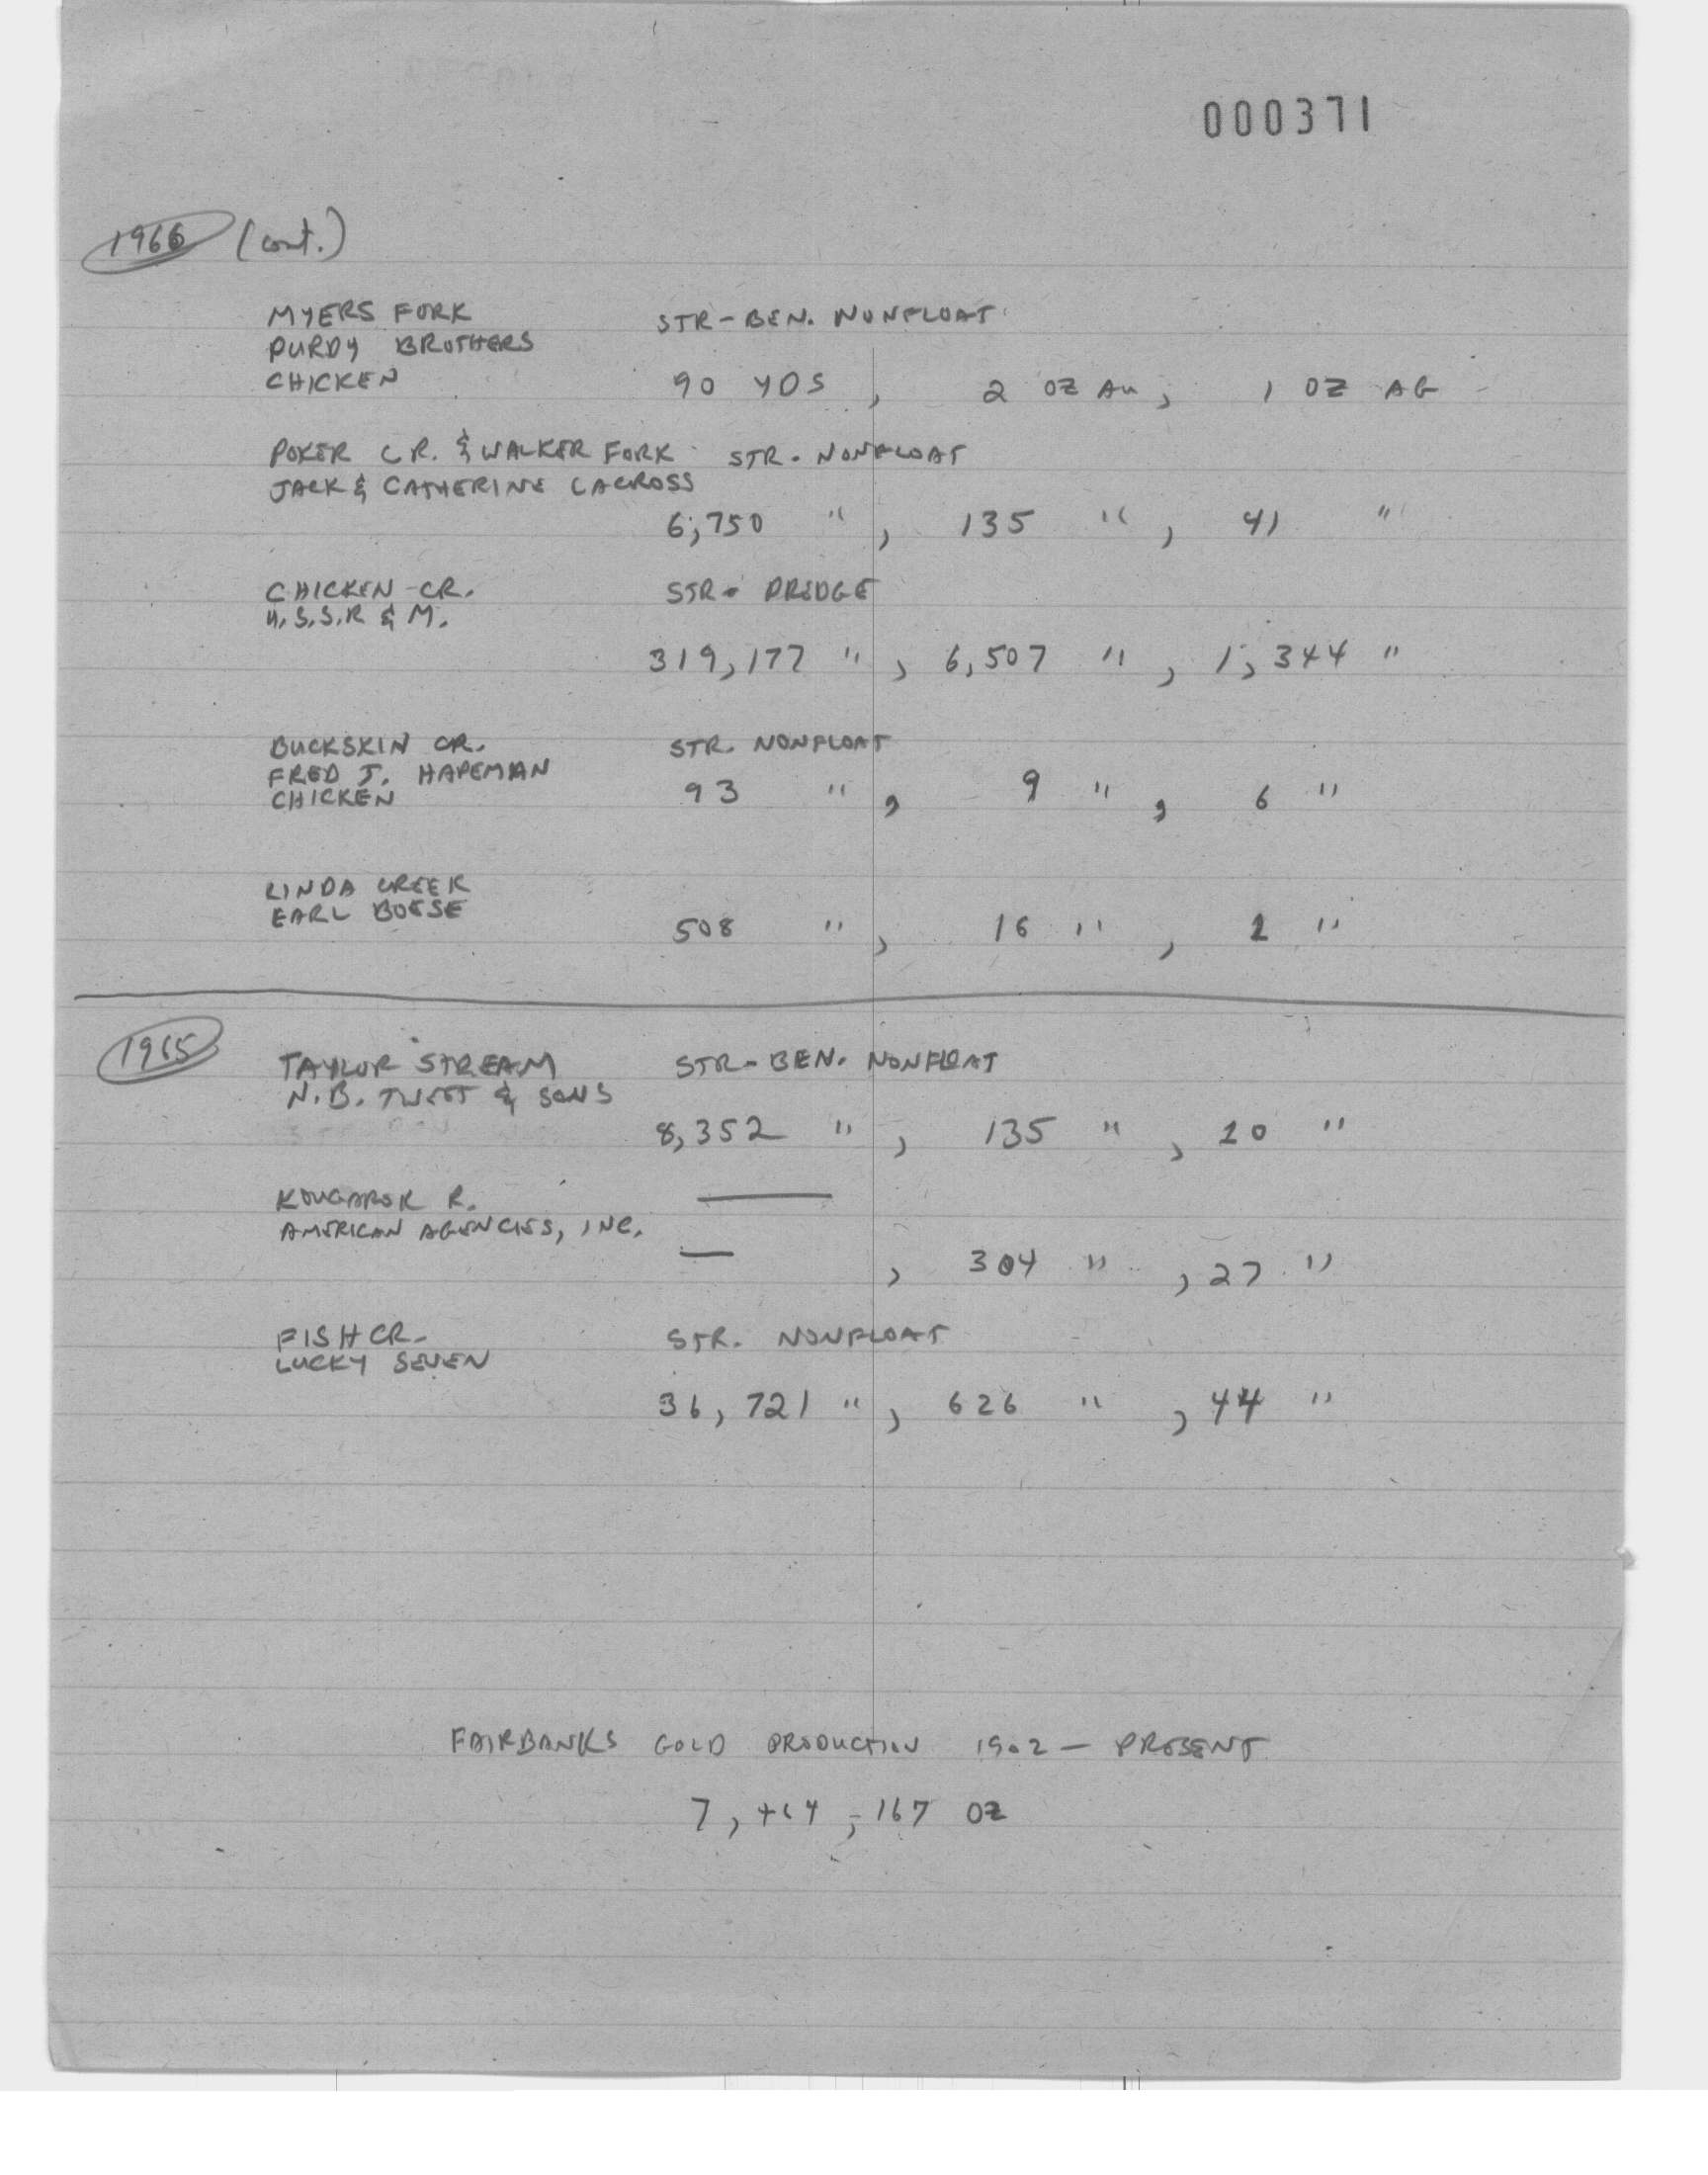 000371
1966 (cont.)
MYERS FORK STR-BEN. NONFLOAT
PURDY BROTHERS
CHICKEN 90 YDS , 2 OZ Au , 1 OZ AG
POKER CR. & WALKER FORK STR. NONFLOAT
JACK & CATHERINE LACROSS
6,750 " , 135 " , 41 "
CHICKEN CR. STR- DREDGE
U.S.S.R & M.
319,177 " , 6,507 " , 1,344 "
BUCKSKIN CR. STR. NONFLOAT
FRED J. HAPEMAN
CHICKEN 93 " , 9 " , 6 "
LINDA CREEK
EARL BOESE
508 " , 16 " , 2 "
1965
TAYLOR STREAM STR-BEN. NONFLOAT
N.B. TWEET & SONS
8,352 " , 135 " , 20 "
KOUGAROK R. —
AMERICAN AGENCIES, INC.
— , 304 " , 27 "
FISH CR. STR. NONFLOAT
LUCKY SEVEN
36,721 " , 626 " , 44 "
FAIRBANKS GOLD PRODUCTION 1902 — PRESENT
OZ